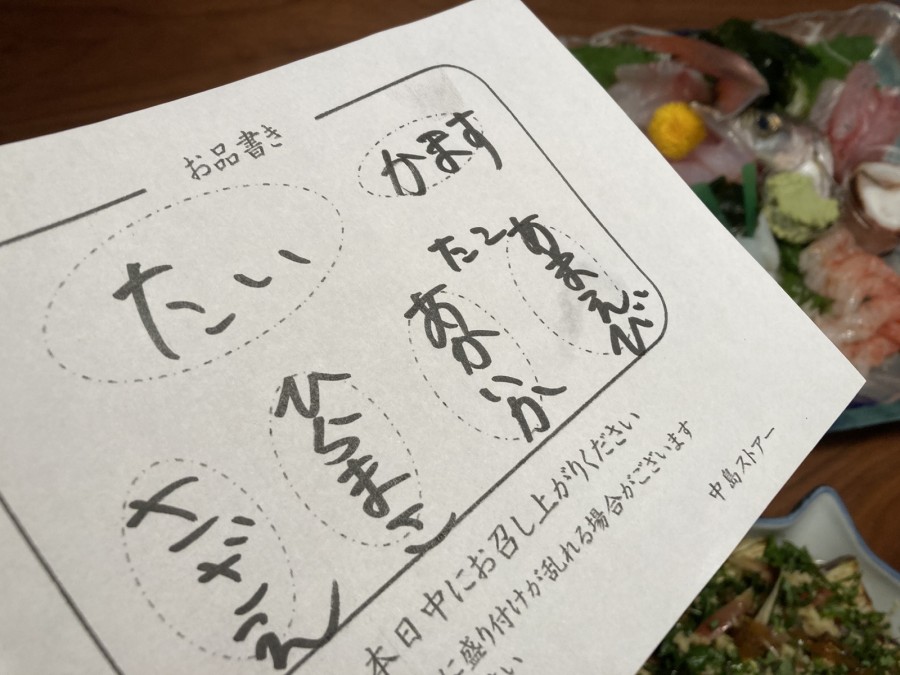 お品書き
かます
たい
たこ
あまえび
あかいか
ひらまさ
さざえ
本日中にお召し上がりください
に盛り付けが乱れる場合がございます
さい
中島ストアー